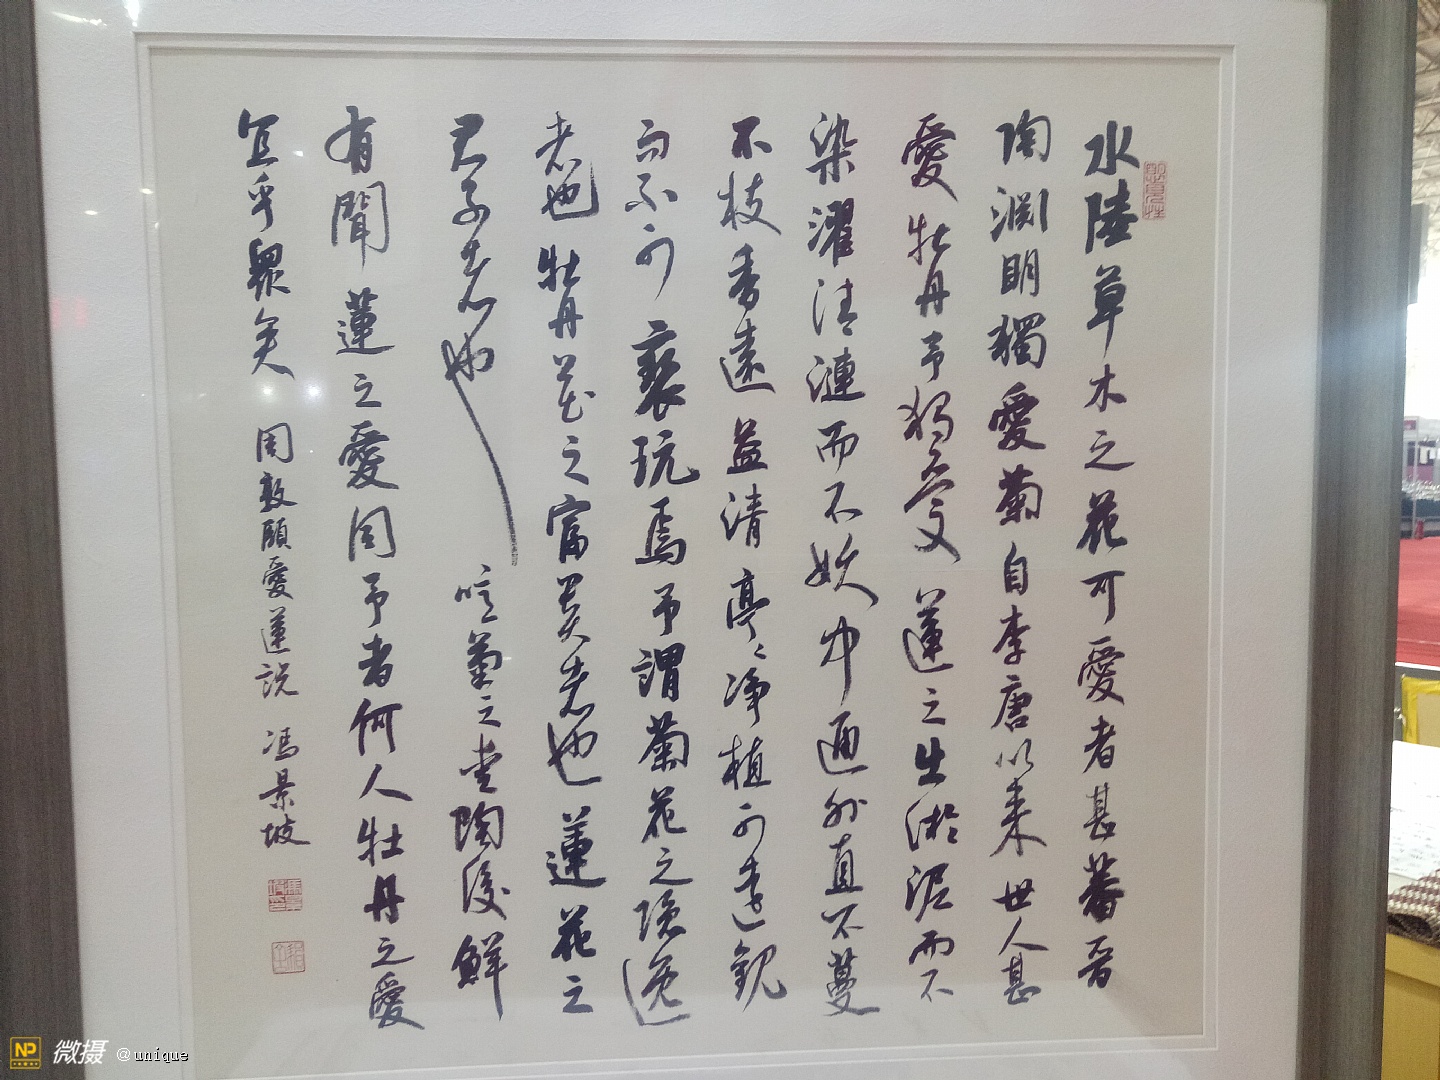 水陸草木之花可愛者甚蕃晉
陶淵明獨愛菊自李唐以来世人甚
愛牡丹予獨愛蓮之出淤泥而不
染濯清漣而不妖中通外直不蔓
不枝香遠益清亭〻净植可遠觀
而不可褻玩焉予謂菊花之隐逸
者也牡丹花之富貴者也蓮花之
君子者也噫菊之愛陶後鮮
有聞蓮之愛同予者何人牡丹之愛
宜乎眾矣 周敦頤愛蓮説 冯景坡
NP 微摄 @unique